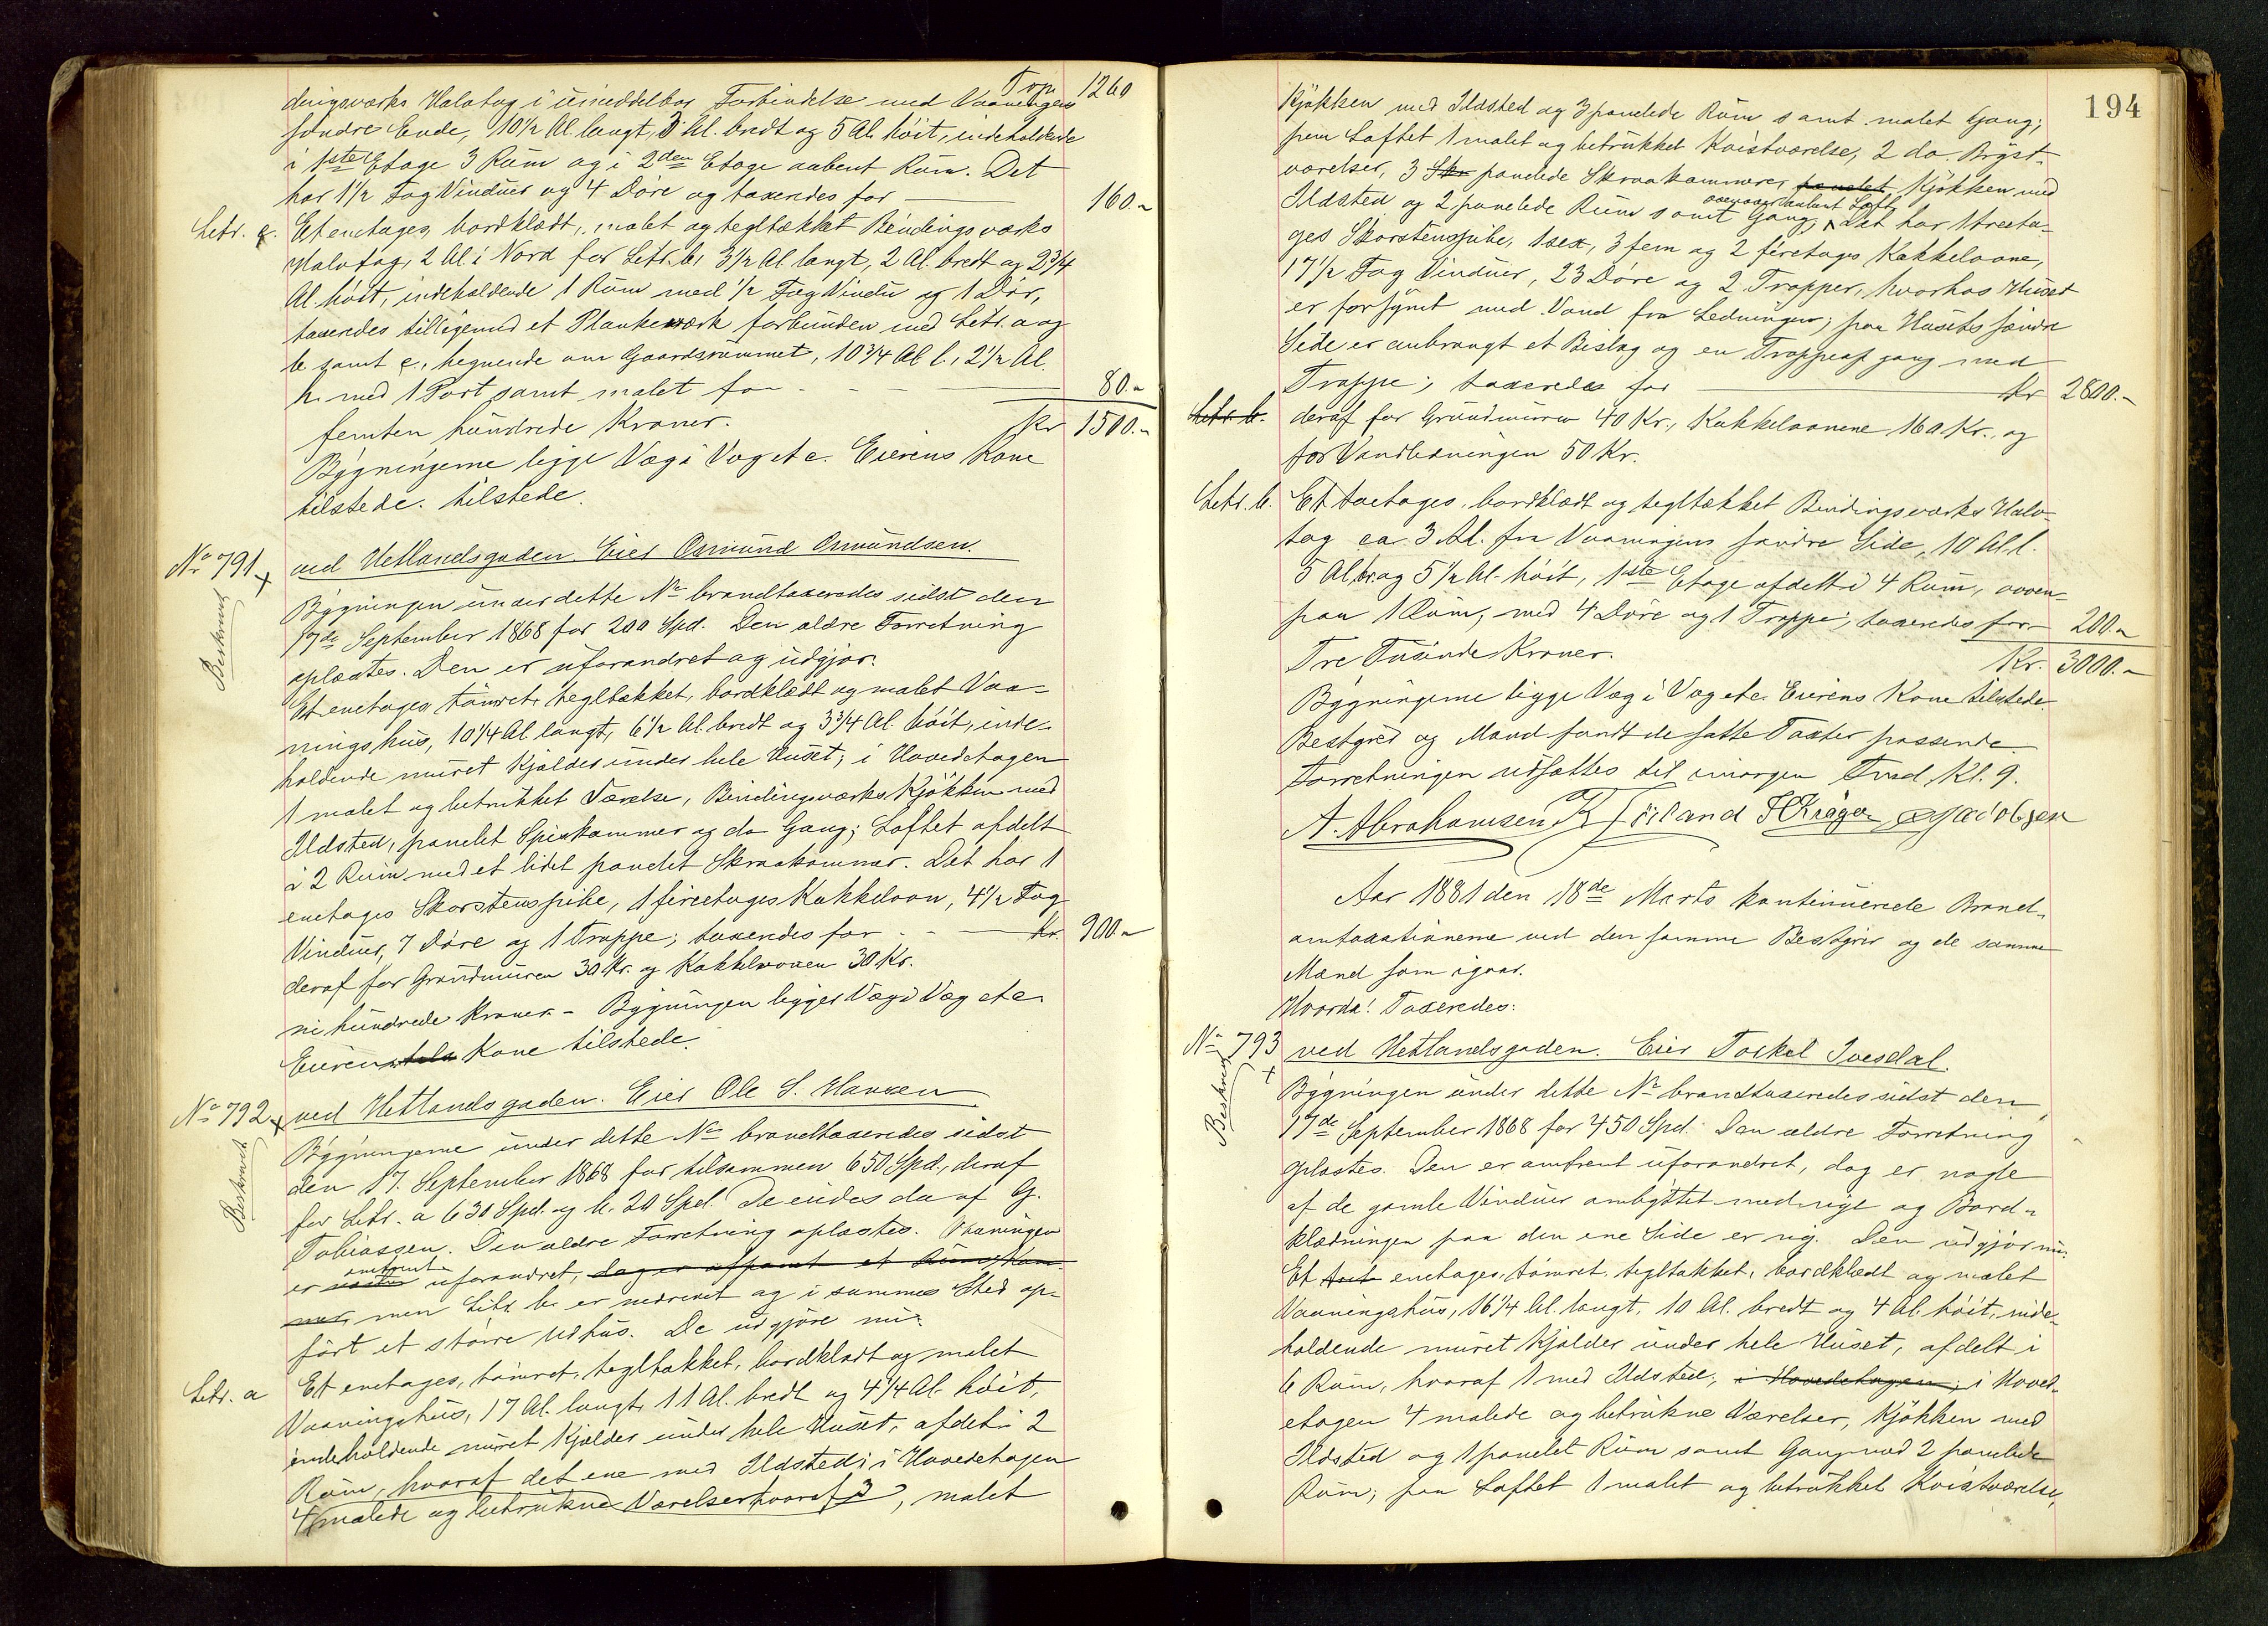 Trp. 1260
dingsværks Halvtag i umiddelbar Forbindelse med Vaaningens
søndre Ende, 10 1/2 Al. langt, 3 Al. bredt og 5 Al. høit, indeholdende
i 1ste Etage 3 Rum og i 2den Etage aabent Rum. Det
har 1 1/2 Fag Vinduer og 4 Døre og taxeredes for 160.-
Litr. c. Et enetages, bordklædt, malet og tegltækket Bindingsværks
Halvtag, 2 Al. i Nord for Litr. b, 3 1/2 Al. langt, 2 Al. bredt og 2 3/4
Al. høit, indeholdende 1 Rum med 1/2 Fag Vindu og 1 Dør,
taxeredes tilligemed et Plankeværk forbunden med Litr. a og
b samt c., hegnende om Gaardsrummet, 10 3/4 Al. l., 2 1/2 Al.
h. med 1 Port samt malet for 80.-
femten hundrede Kroner. Kr 1500.-
Bygningerne ligge Væg i Væg etc. Eierens Kone
tilstede. tilstede.
No 791 ved Hetlandsgaden. Eier Osmund Osmundsen.
Beskrevet
Bygningen under dette No brandtaxeredes sidst den
17de September 1868 for 200 Spd. Den ældre Forretning
oplæstes. Den er uforandret og udgjør.
Et enetages tømret, tegltækket, bordklædt og malet Vaa-
ningshus, 10 1/4 Al. langt, 6 1/2 Al. bredt og 3 3/4 Al. høit, inde-
holdende muret Kjælder under hele Huset; i Hovedetagen
1 malet og betrukket Værelse, Bindingsværks Kjøkken med
Ildsted, panelet Spiskammer og do Gang; Loftet afdelt
i 2 Rum med et lidet panelet Skraakammer. Det har 1
enetages Skorstenspibe, 1 fireetages Kakkelovn, 4 1/2 Fag
Vinduer, 7 Døre og 1 Trappe; taxeredes for Kr. 900.-
deraf for Grundmuren 30 Kr. og Kakkelovnen 30 Kr.
ni hundrede Kroner. - Bygningen ligger Væg i Væg etc.
Eierens tils Kone tilstede.
No 792 ved Hetlandsgaden. Eier Ole S. Hansen
Beskrevet
Bygningerne under dette No brandtaxeredes sidst
den 17. September 1868 for tilsammen 650 Spd., deraf
for Litr. a 630 Spd. og b. 20 Spd. De eiedes da af G.
Tobiassen. Den ældre Forretning oplæstes. Vaaningen
omtrent
er næsten uforandret, dog er afpanet et Rum, Kam-
mer, men Litr. b. er nedrevet og i sammes Sted op-
ført et større Udhus. De udgjøre nu:
Litr. a Et enetages, tømret, tegltækket, bordklædt og malet
Vaaningshus, 17 Al. langt, 11 Al. bredt og 4 1/4 Al. høit,
indeholdende muret Kjælder under hele Huset, afdelt i 2
Rum, hvoraf det ene med Ildsted; i Hovedetagen
4 malede og betrukne Værelser hvoraf 3, malet
194
Kjøkken med Ildsted og 3 panelede Rum samt malet Gang;
paa Loftet 1 malet og betrukket Kvistværelse, 2 do. Bryst-
værelser, 3 Skr panelede Skraakammere, panelet Kjøkken med
ovenover aabent Loft,
Ildsted og 2 panelede Rum samt Gang; Det har 1 treeta-
ges Skorstenspibe, 1 sex, 3 fem og 2 fireetages Kakkelovne,
17 1/2 Fag Vinduer, 23 Døre og 2 Trapper, hvorhos Huset
er forsynet med Vand fra Ledningen; paa Husets søndre
Side er anbragt et Bislag og en Trappeafgang med
Trappe; taxeredes for Kr 2800.-
Litr. b. deraf for Grundmuren 40 Kr., Kakkelovnene 160 Kr., og
for Vandledningen 50 Kr.
Litr. b. Et toetages, bordklædt og tegltækket Bindingsværks Halv-
tag ca. 3 Al. fra Vaaningens søndre Side, 10 Al. l.
5 Al. br. og 5 1/2 Al. høit, 1ste Etage afdelt i 4 Rum, oven-
paa 1 Rum, med 4 Døre og 1 Trappe; taxeredes for 200.-
Tre Tusinde Kroner. Kr. 3000.-
Bygningerne ligge Væg i Væg etc. Eierens Kone tilstede.
Bestyrer og Mænd fandt de satte Taxter passende.
Forretningen udsattes til imorgen Frmd. Kl. 9.
A. Abrahamsen
Aar 1881 den 18de Marts kontinuerede Brand-
omtaxationerne ved den samme Bestyrer og de samme
Mænd som igaar.
Hvorda! Taxeredes:
No 793 ved Hetlandsgaden. Eier Torkel Ivesdal.
Beskrevet
Bygningen under dette No brandtaxeredes sidst den
17de September 1868 for 450 Spd. Den ældre Forretning
oplæstes. Den er omtrent uforandret, dog er nogle
af de gamle Vinduer ombyttet med nye og Bord-
klædningen paa den ene Side er ny. Den udgjør nu:
Et tuet enetages, tømret, tegltækket, bordklædt og malet
Vaaningshus, 16 1/4 Al. langt, 10 Al. bredt og 4 Al. høit, inde-
holdende muret Kjælder under hele Huset, afdelt i
6 Rum, hvoraf 1 med Ildsted; i Hovedetagen; i Hoved-
etagen 4 malede og betrukne Værelser, Kjøkken med
Ildsted og 1 panelet Rum samt Gang med 2 panelede
Rum; paa Loftet 1 malet og betrukket Kvistværelse,